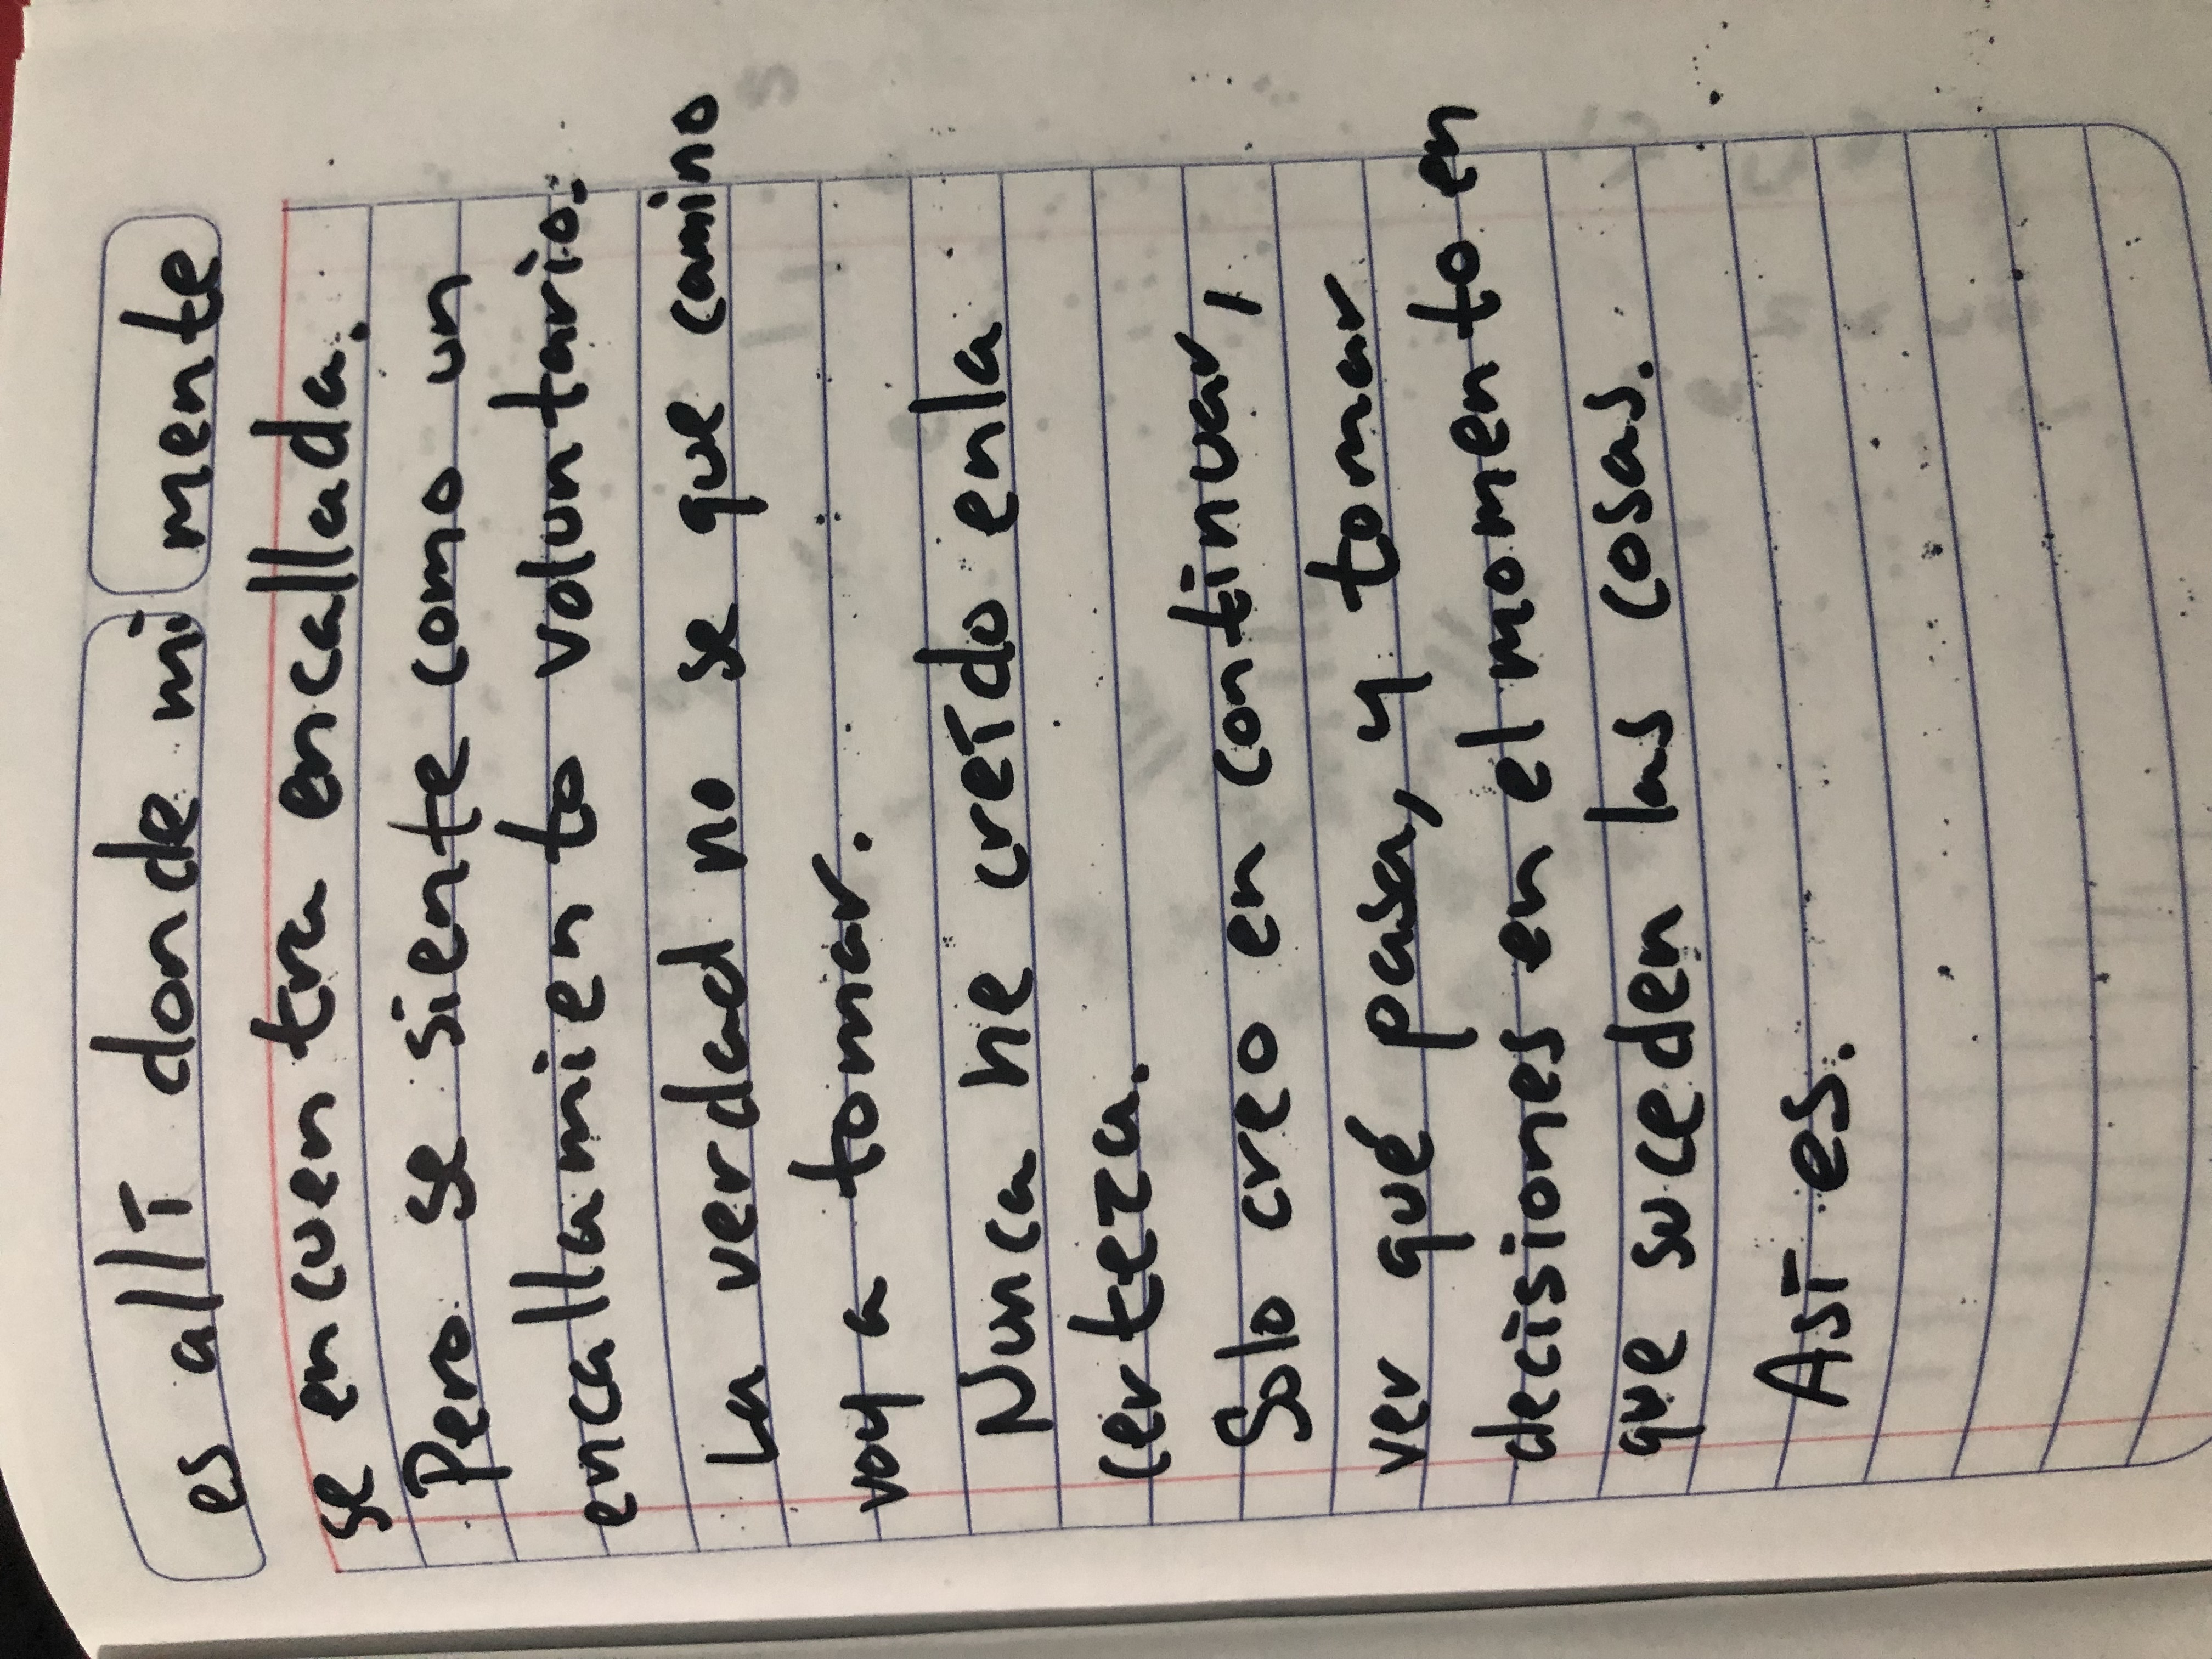 es allí donde mi mente
se encuentra encallada.
Pero se siente como un
encallamiento voluntario.
La verdad no se que camino
voy a tomar.
Nunca he creído en la
certeza.
Solo creo en continuar,
ver qué pasa, y tomar
decisiones en el momento en
que suceden las cosas.
Así es.